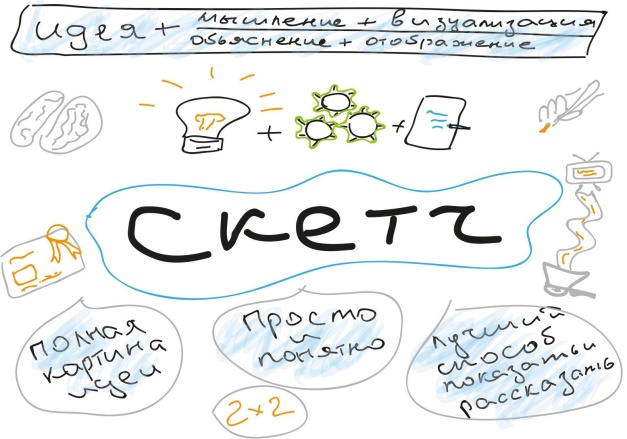 идея + мышление + визуализация
объяснение + отображение
скетч
полная
картина
идеи
просто
и
понятно
2x2
лучший
способ
показать и
рассказать